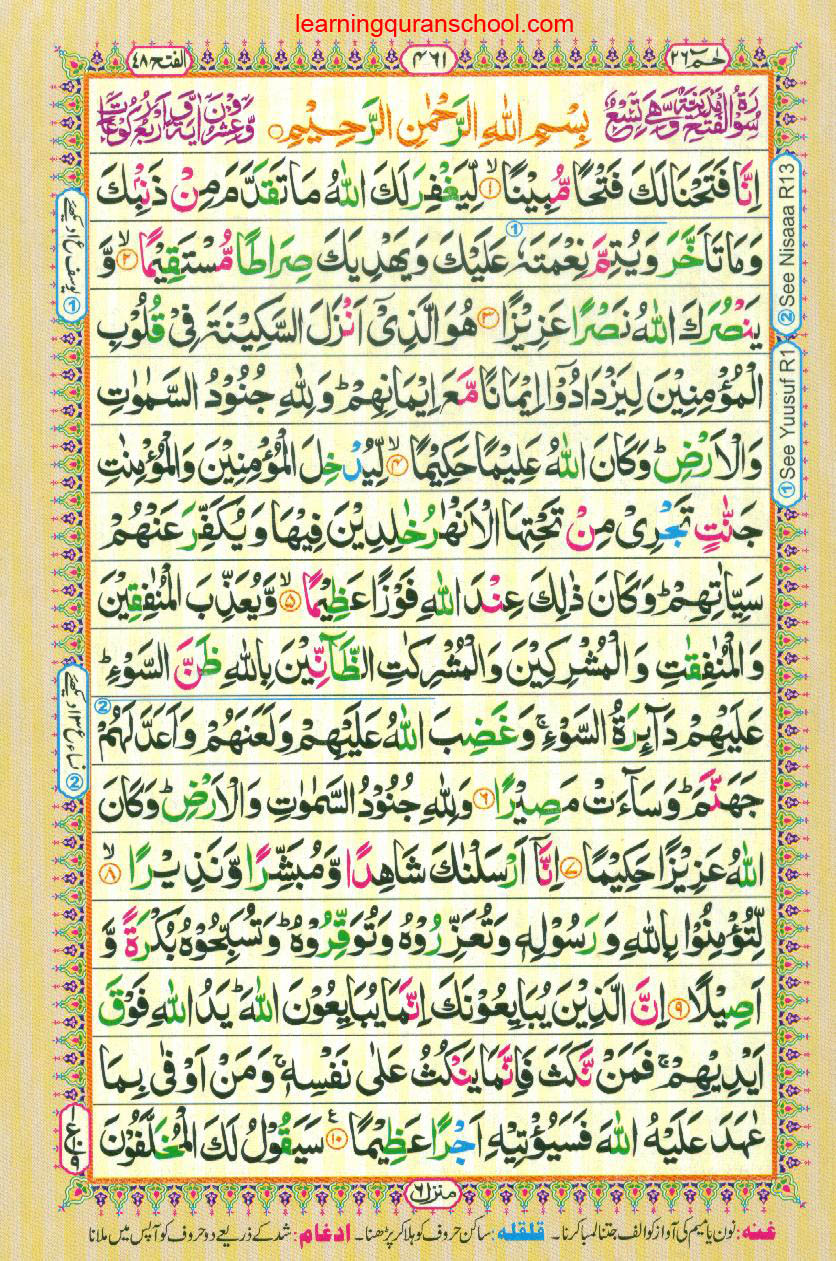 learningquranschool.com
الفتح ٤٨
٤٦١
حٰمٓ ٢٦
سُوْرَةُ الْفَتْحِ مَدَنِيَّةٌ وَّهِيَ تِسْعٌ
بِسْمِ اللّٰهِ الرَّحْمٰنِ الرَّحِيْمِ
وَّعِشْرُوْنَ اٰيَةً وَّاَرْبَعُ رُكُوْعَاتٍ
اِنَّا فَتَحْنَا لَكَ فَتْحًا مُّبِيْنًا ۙ﴿۱﴾ لِّيَغْفِرَ لَكَ اللّٰهُ مَا تَقَدَّمَ مِنْ ذَنْۢبِكَ
وَمَا تَاَخَّرَ وَيُتِمَّ نِعْمَتَهٗ عَلَيْكَ وَيَهْدِيَكَ صِرَاطًا مُّسْتَقِيْمًا ۙ﴿۲﴾ وَّ
يَنْصُرَكَ اللّٰهُ نَصْرًا عَزِيْزًا ﴿۳﴾ هُوَ الَّذِيْۤ اَنْزَلَ السَّكِيْنَةَ فِيْ قُلُوْبِ
الْمُؤْمِنِيْنَ لِيَزْدَادُوْۤا اِيْمَانًا مَّعَ اِيْمَانِهِمْ ؕ وَلِلّٰهِ جُنُوْدُ السَّمٰوٰتِ
وَالْاَرْضِ ؕ وَكَانَ اللّٰهُ عَلِيْمًا حَكِيْمًا ۙ﴿۴﴾ لِّيُدْخِلَ الْمُؤْمِنِيْنَ وَالْمُؤْمِنٰتِ
جَنّٰتٍ تَجْرِيْ مِنْ تَحْتِهَا الْاَنْهٰرُ خٰلِدِيْنَ فِيْهَا وَيُكَفِّرَ عَنْهُمْ
سَيِّاٰتِهِمْ ؕ وَكَانَ ذٰلِكَ عِنْدَ اللّٰهِ فَوْزًا عَظِيْمًا ۙ﴿۵﴾ وَّيُعَذِّبَ الْمُنٰفِقِيْنَ
وَالْمُنٰفِقٰتِ وَالْمُشْرِكِيْنَ وَالْمُشْرِكٰتِ الظَّآنِّيْنَ بِاللّٰهِ ظَنَّ السَّوْءِ ؕ
عَلَيْهِمْ دَآىِٕرَةُ السَّوْءِ ۚ وَغَضِبَ اللّٰهُ عَلَيْهِمْ وَلَعَنَهُمْ وَاَعَدَّ لَهُمْ
جَهَنَّمَ ؕ وَسَآءَتْ مَصِيْرًا ﴿۶﴾ وَلِلّٰهِ جُنُوْدُ السَّمٰوٰتِ وَالْاَرْضِ ؕ وَكَانَ
اللّٰهُ عَزِيْزًا حَكِيْمًا ﴿۷﴾ اِنَّاۤ اَرْسَلْنٰكَ شَاهِدًا وَّمُبَشِّرًا وَّنَذِيْرًا ۙ﴿۸﴾
لِّتُؤْمِنُوْا بِاللّٰهِ وَرَسُوْلِهٖ وَتُعَزِّرُوْهُ وَتُوَقِّرُوْهُ ؕ وَتُسَبِّحُوْهُ بُكْرَةً وَّ
اَصِيْلًا ﴿۹﴾ اِنَّ الَّذِيْنَ يُبَايِعُوْنَكَ اِنَّمَا يُبَايِعُوْنَ اللّٰهَ ؕ يَدُ اللّٰهِ فَوْقَ
اَيْدِيْهِمْ ۚ فَمَنْ نَّكَثَ فَاِنَّمَا يَنْكُثُ عَلٰى نَفْسِهٖ ۚ وَمَنْ اَوْفٰى بِمَا
عٰهَدَ عَلَيْهُ اللّٰهَ فَسَيُؤْتِيْهِ اَجْرًا عَظِيْمًا ﴿۱۰﴾ سَيَقُوْلُ لَكَ الْمُخَلَّفُوْنَ
② See Nisaaa R13
① See Yuusuf R1
یوسف ع ۱ دیکھئے ①
نساء ع ۱۳ دیکھئے ②
منزل ٦
غنہ: نون یا میم کی آواز کو الف جتنا لمبا کرنا۔ قلقلہ: ساکن حروف کو ہلا کر پڑھنا۔ ادغام: شد کے ذریعے دو حروف کو آپس میں ملانا